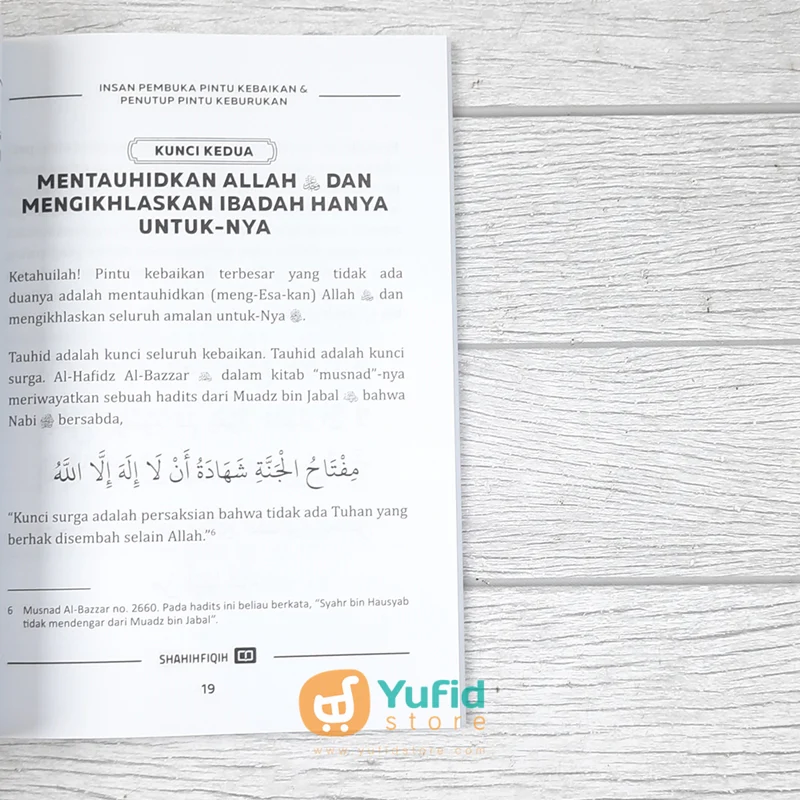 INSAN PEMBUKA PINTU KEBAIKAN &
PENUTUP PINTU KEBURUKAN
KUNCI KEDUA
MENTAUHIDKAN ALLAH ﷻ DAN
MENGIKHLASKAN IBADAH HANYA
UNTUK-NYA
Ketahuilah! Pintu kebaikan terbesar yang tidak ada
duanya adalah mentauhidkan (meng-Esa-kan) Allah ﷻ dan
mengikhlaskan seluruh amalan untuk-Nya ﷻ.
Tauhid adalah kunci seluruh kebaikan. Tauhid adalah kunci
surga. Al-Hafidz Al-Bazzar dalam kitab “musnad”-nya
meriwayatkan sebuah hadits dari Muadz bin Jabal bahwa
Nabi ﷺ bersabda,
مِفْتَاحُ الْجَنَّةِ شَهَادَةُ أَنْ لَا إِلَهَ إِلَّا اللَّهُ
“Kunci surga adalah persaksian bahwa tidak ada Tuhan yang
berhak disembah selain Allah.”⁶
6 Musnad Al-Bazzar no. 2660. Pada hadits ini beliau berkata, “Syahr bin Hausyab
tidak mendengar dari Muadz bin Jabal”.
SHAHIHFIQIH
19
Yufid
store
www.yufidstore.com